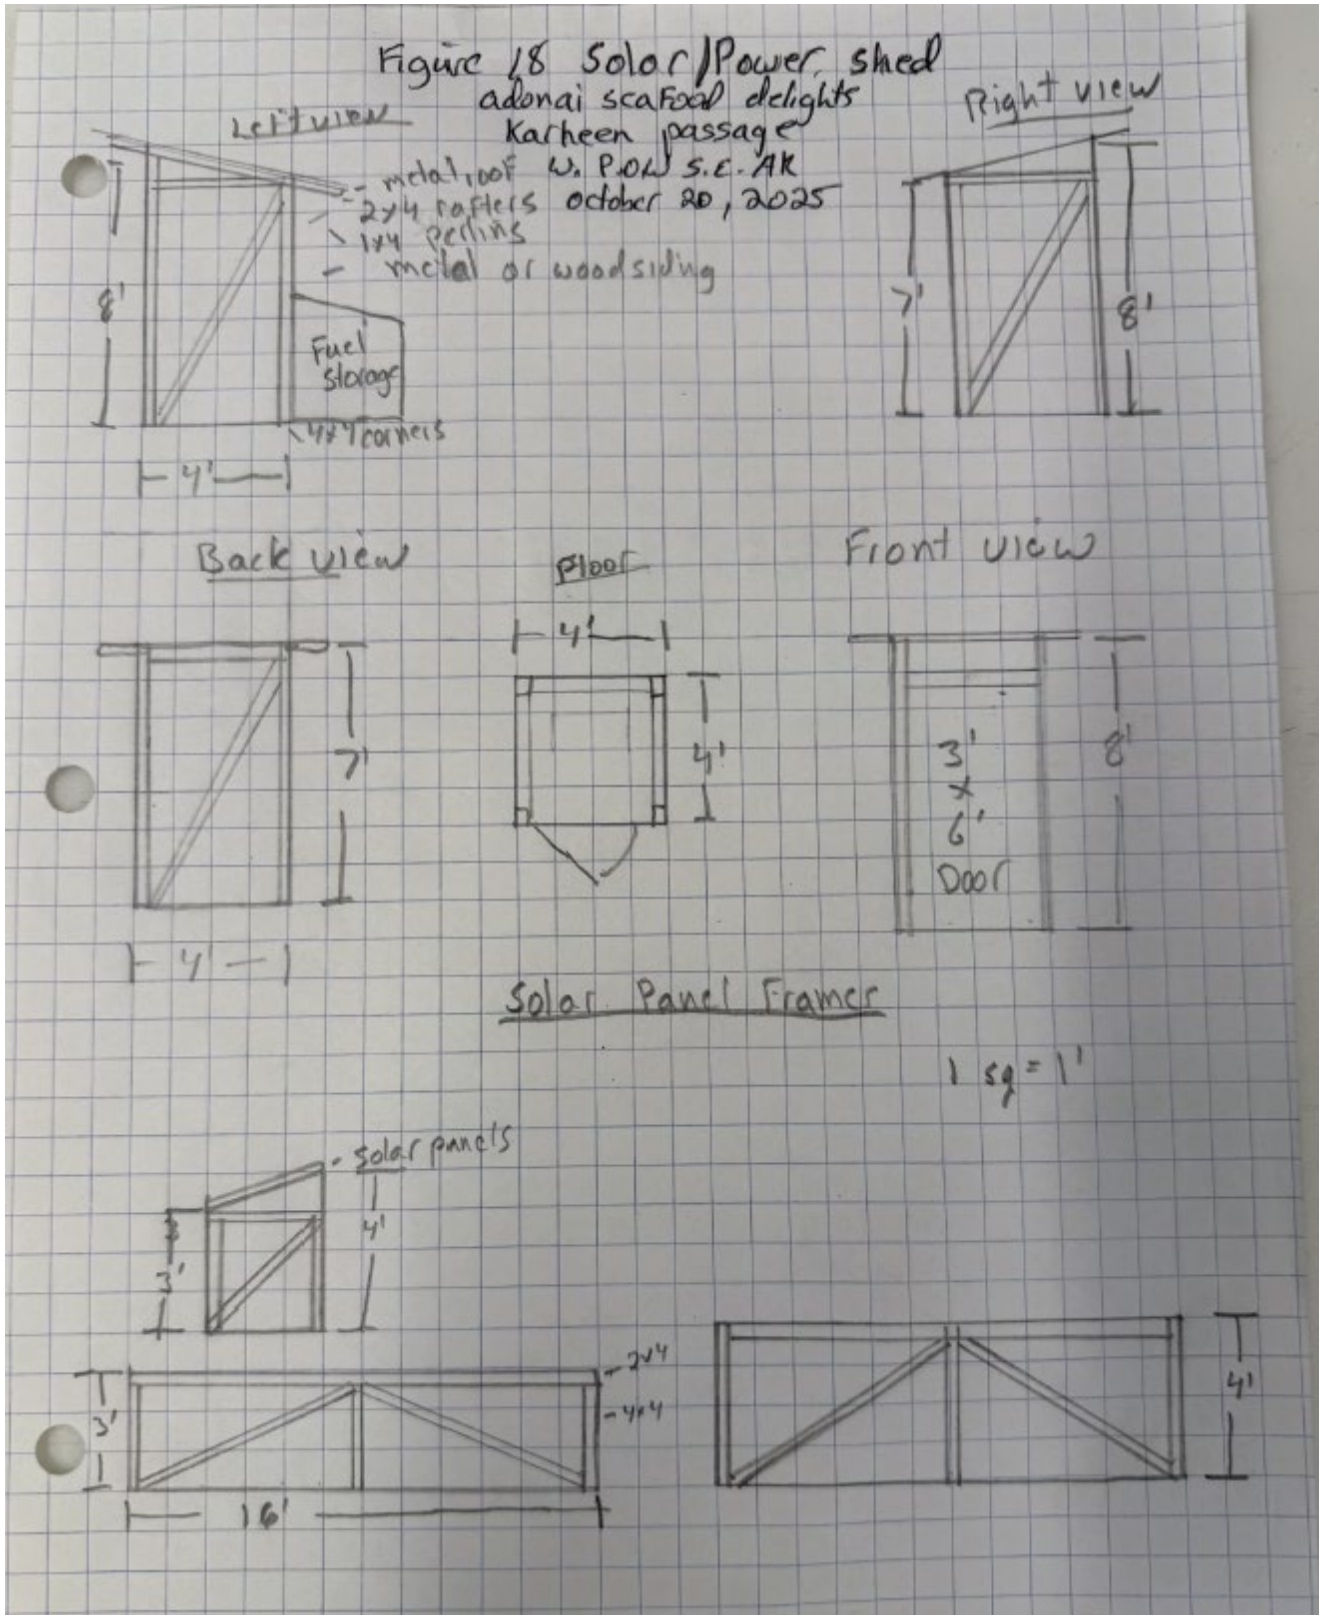 Figure 18 Solar/Power shed
adonai seafood delights
Karheen passage
W. P.O.W S.E. AK
october 20, 2025
Left view
Right view
- metal roof
- 2x4 rafters
1x4 perlins
- metal or wood siding
8'
Fuel
storage
4x4 corners
4'
7'
8'
Back view
Floor
Front view
4'
7'
4'
4'
3'
x
6'
Door
8'
Solar Panel Frames
1 sq = 1'
- solar panels
3'
4'
- 2x4
- 4x4
3'
16'
4'